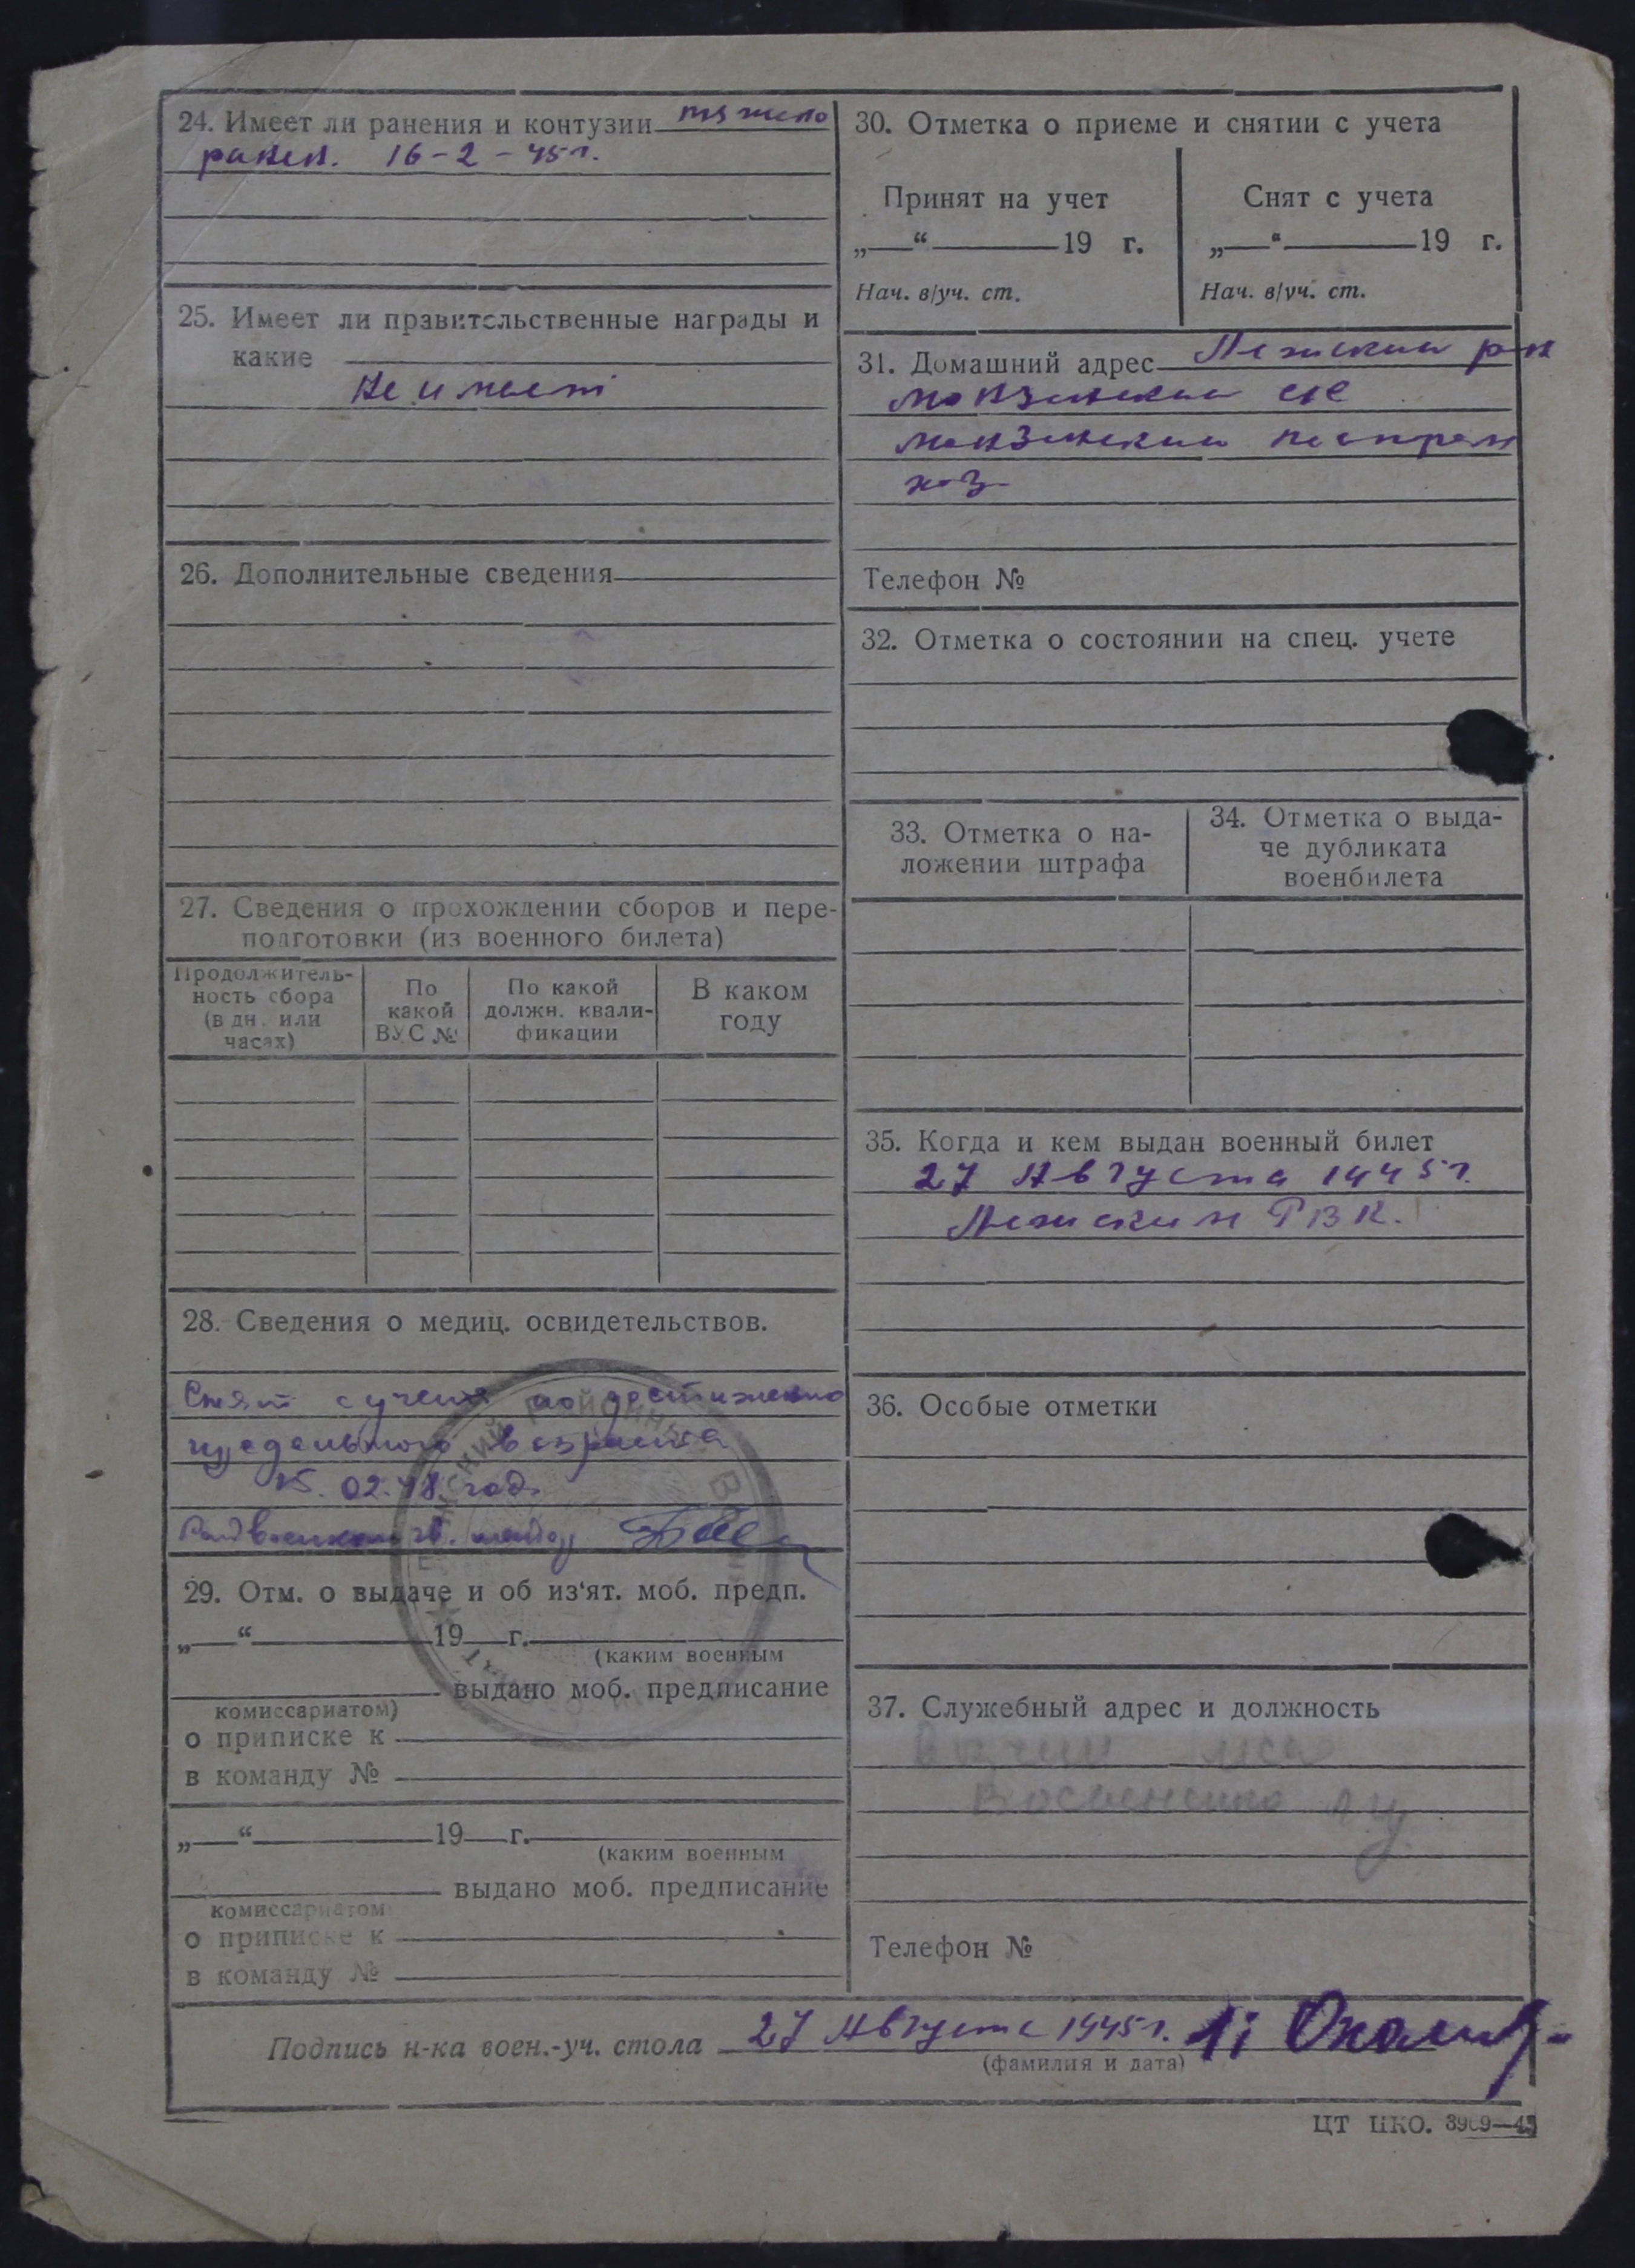 24. Имеет ли ранения и контузии тяжело
ранен. 16-2-45 г.
25. Имеет ли правительственные награды и
какие
не имеет
26. Дополнительные сведения
27. Сведения о прохождении сборов и пере-
подготовки (из военного билета)
Продолжитель-
ность сбора
(в дн. или
часах)
По
какой
ВУС №
По какой
должн. квали-
фикации
В каком
году
28. Сведения о медиц. освидетельствов.
Снят с учета по достижению
предельного возраста
02.48 год.
Райвоенком
29. Отм. о выдаче и об из'ят. моб. предп.
„—“ 19 г.
(каким военным
выдано моб. предписание
комиссариатом)
о приписке к
в команду №
„—“ 19 г.
(каким военным
выдано моб. предписание
комиссариатом
о приписке к
в команду №
30. Отметка о приеме и снятии с учета
Принят на учет
„—“ 19 г.
Нач. в/уч. ст.
Снят с учета
„—“ 19 г.
Нач. в/уч. ст.
31. Домашний адрес Лежский р-н
Монзенский с/с
Монзенский леспром
хоз
Телефон №
32. Отметка о состоянии на спец. учете
33. Отметка о на-
ложении штрафа
34. Отметка о выда-
че дубликата
военбилета
35. Когда и кем выдан военный билет
27 Августа 1945 г.
Лежским РВК.
36. Особые отметки
37. Служебный адрес и должность
Телефон №
Подпись н-ка воен.-уч. стола 27 Августа 1945 г.
(фамилия и дата)
ЦТ НКО. 3969—45